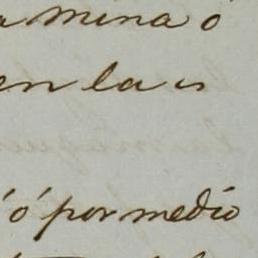 mina ó
en la
ó por medio